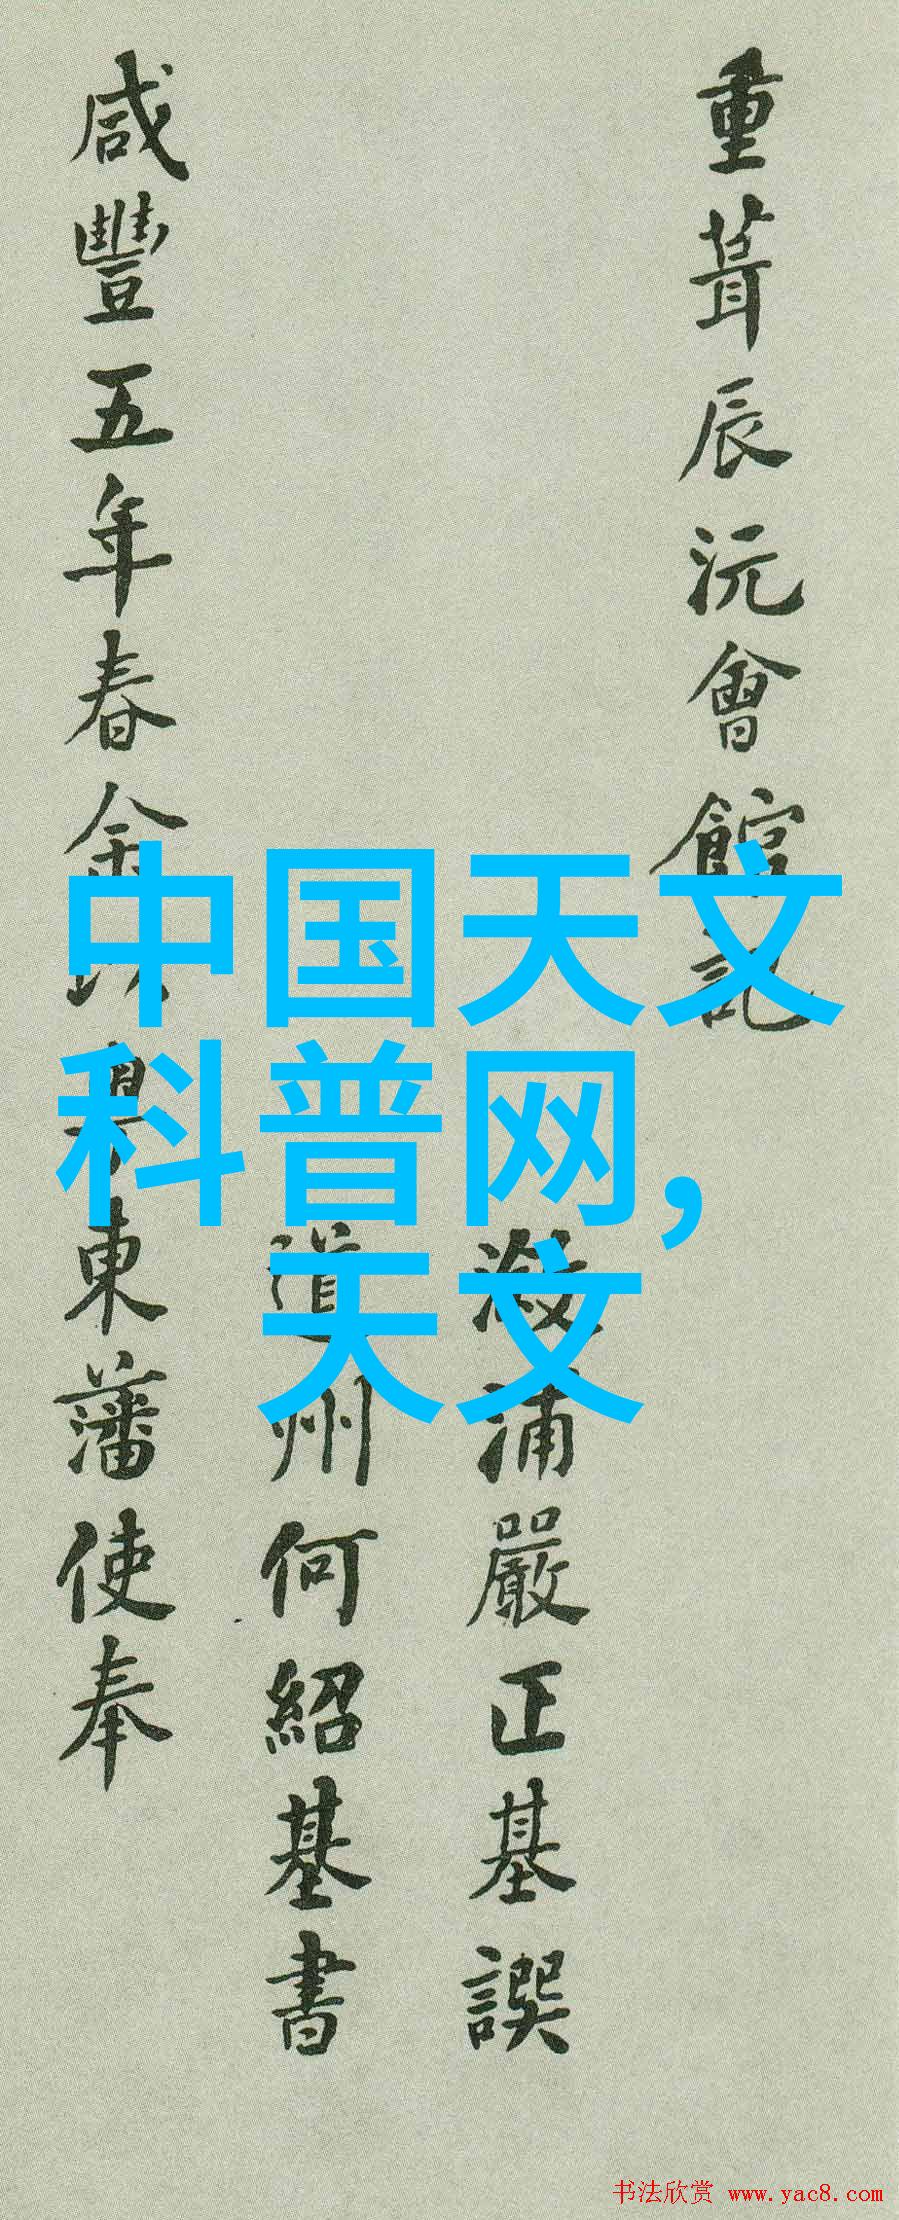 重葺辰沅會館記
漵浦嚴正基譔
道州何紹基書
咸豐五年春金
東藩使奉
中国天文
科普网,
天文
书法欣赏 www.yac8.com